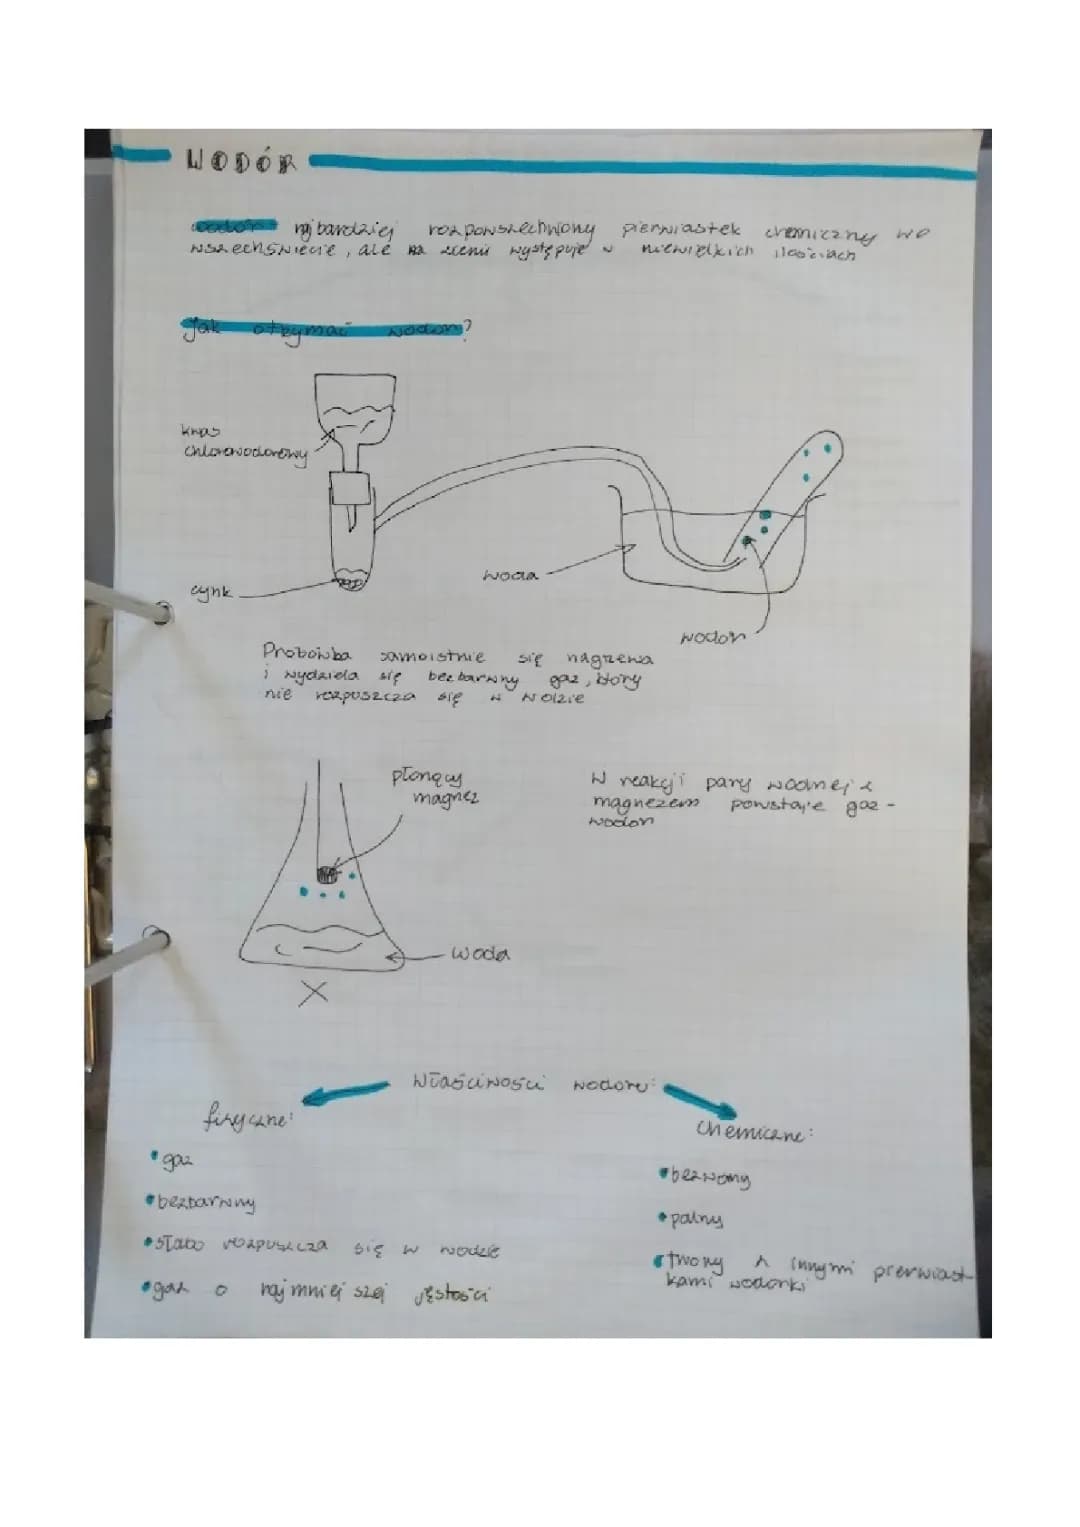 WODÓR
wodór najbardziej rozpowszechniony pierwiastek chemiczny we
wszechświecie, ale na ziemi występuje w niewielkich ilościach
Jak otrzymać wodór?
kwas
chlorowodorowy
cynk
woda
wodór
Probówka samoistnie się nagrzewa
i wydziela się bezbarwny gaz, który
nie rozpuszcza się w wodzie
płonący
magnez
W reakcji pary wodnej z
magnezem powstaje gaz -
wodór
woda
Właściwości wodoru:
fizyczne:
• gaz
• bezbarwny
• słabo rozpuszcza się w wodzie
• gaz o najmniejszej gęstości
chemiczne:
• bezwonny
• palny
• tworzy z innymi pierwiast-
kami wodorki